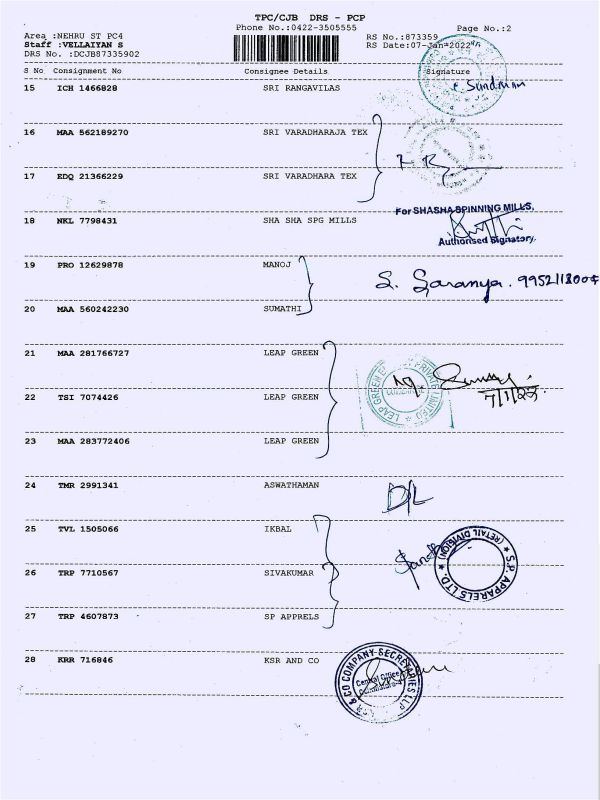 TPC/CJB DRS - PCP
Phone No.:0422-3505555
Page No.:2
Area :NEHRU ST PC4
Staff :VELLAIYAN S
DRS No. :DCJB87335902
RS No.:873359
RS Date:07-Jan-2022
S No Consignment No Consignee Details Signature
15 ICH 1466828 SRI RANGAVILAS
16 MAA 562189270 SRI VARADHARAJA TEX
17 EDQ 21366229 SRI VARADHARA TEX
For SHASHA SPINNING MILLS,
18 NKL 7798431 SHA SHA SPG MILLS
Authorised Signatory.
19 PRO 12629878 MANOJ
S. Saranya.
20 MAA 560242230 SUMATHI
21 MAA 281766727 LEAP GREEN
22 TSI 7074426 LEAP GREEN
7/1/22
23 MAA 283772406 LEAP GREEN
24 TMR 2991341 ASWATHAMAN
D/L
25 TVL 1505066 IKBAL
26 TRP 7710567 SIVAKUMAR
S.P. APPARELS LTD. (RETAIL DIVISION)
27 TRP 4607873 SP APPRELS
28 KRR 716846 KSR AND CO
& CO COMPANY SECRETARIES LLP
Central Office